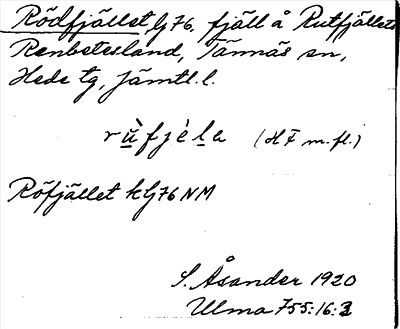 Rödfjället lj 76, fjäll å Rutfjällets
Renbetesland, Tännäs sn,
Hede tg, Jämtl. l.
rùfjèḷa (HF m.fl.)
Röfjället klj 76 NM
S. Åsander 1920
Ulma 755:16:2